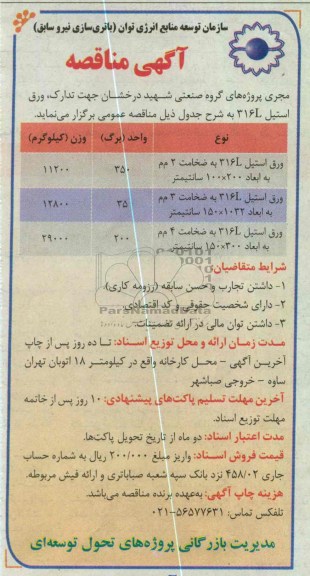 سازمان توسعه منابع انرژی توان (باتری‌سازی نیرو سابق)
آگهی مناقصه
مجری پروژه‌های گروه صنعتی شهید درخشان جهت تدارک، ورق
استیل ۳۱۶L به شرح جدول ذیل مناقصه عمومی برگزار می‌نماید.
نوع واحد (برگ) وزن (کیلوگرم)
ورق استیل ۳۱۶L به ضخامت ۲ مم
به ابعاد ۲۰۰×۱۰۰ سانتیمتر ۳۵۰ ۱۱۲۰۰
ورق استیل ۳۱۶L به ضخامت ۳ مم
به ابعاد ۱۰۳۲×۱۵۰ سانتیمتر ۳۵ ۱۲۸۰۰
ورق استیل ۳۱۶L به ضخامت ۴ مم
به ابعاد ۳۰۰×۱۵۰ سانتیمتر ۲۰۰ ۲۹۰۰۰
شرایط متقاضیان:
۱- داشتن تجارب و حسن سابقه (رزومه کاری)
۲- دارای شخصیت حقوقی و کد اقتصادی
۳- داشتن توان مالی در ارائه تضمینات.
ParsNamadData
مدت زمان ارائه و محل توزیع اسناد: تا ده روز پس از چاپ
آخرین آگهی - محل کارخانه واقع در کیلومتر ۱۸ اتوبان تهران
ساوه - خروجی صباشهر
آخرین مهلت تسلیم پاکت‌های پیشنهادی: ۱۰ روز پس از خاتمه
مهلت توزیع اسناد.
مدت اعتبار اسناد: دو ماه از تاریخ تحویل پاکت‌ها.
قیمت فروش اسناد: واریز مبلغ ۲۰۰/۰۰۰ ریال به شماره حساب
جاری ۴۵۸/۰۲ نزد بانک سپه شعبه صباباتری و ارائه فیش مربوطه.
هزینه چاپ آگهی: به‌عهده برنده مناقصه می‌باشد.
تلفکس تماس: ۵۶۵۷۷۶۳۱-۰۲۱
مدیریت بازرگانی پروژه‌های تحول توسعه‌ای